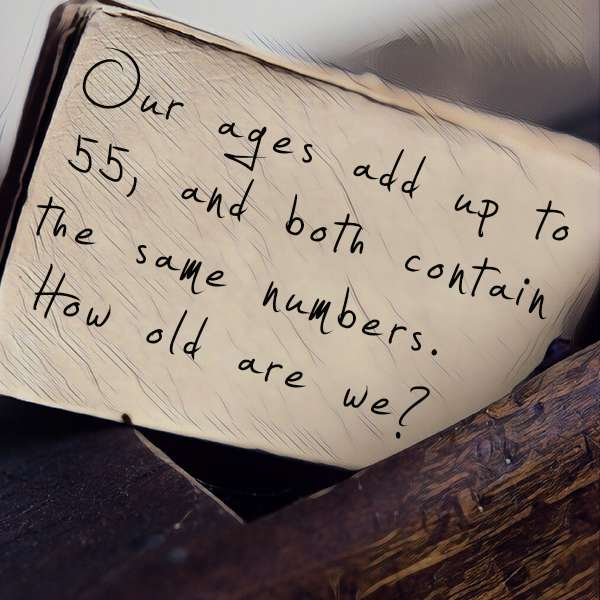 Our ages add up to
55, and both contain
the same numbers.
How old are we?